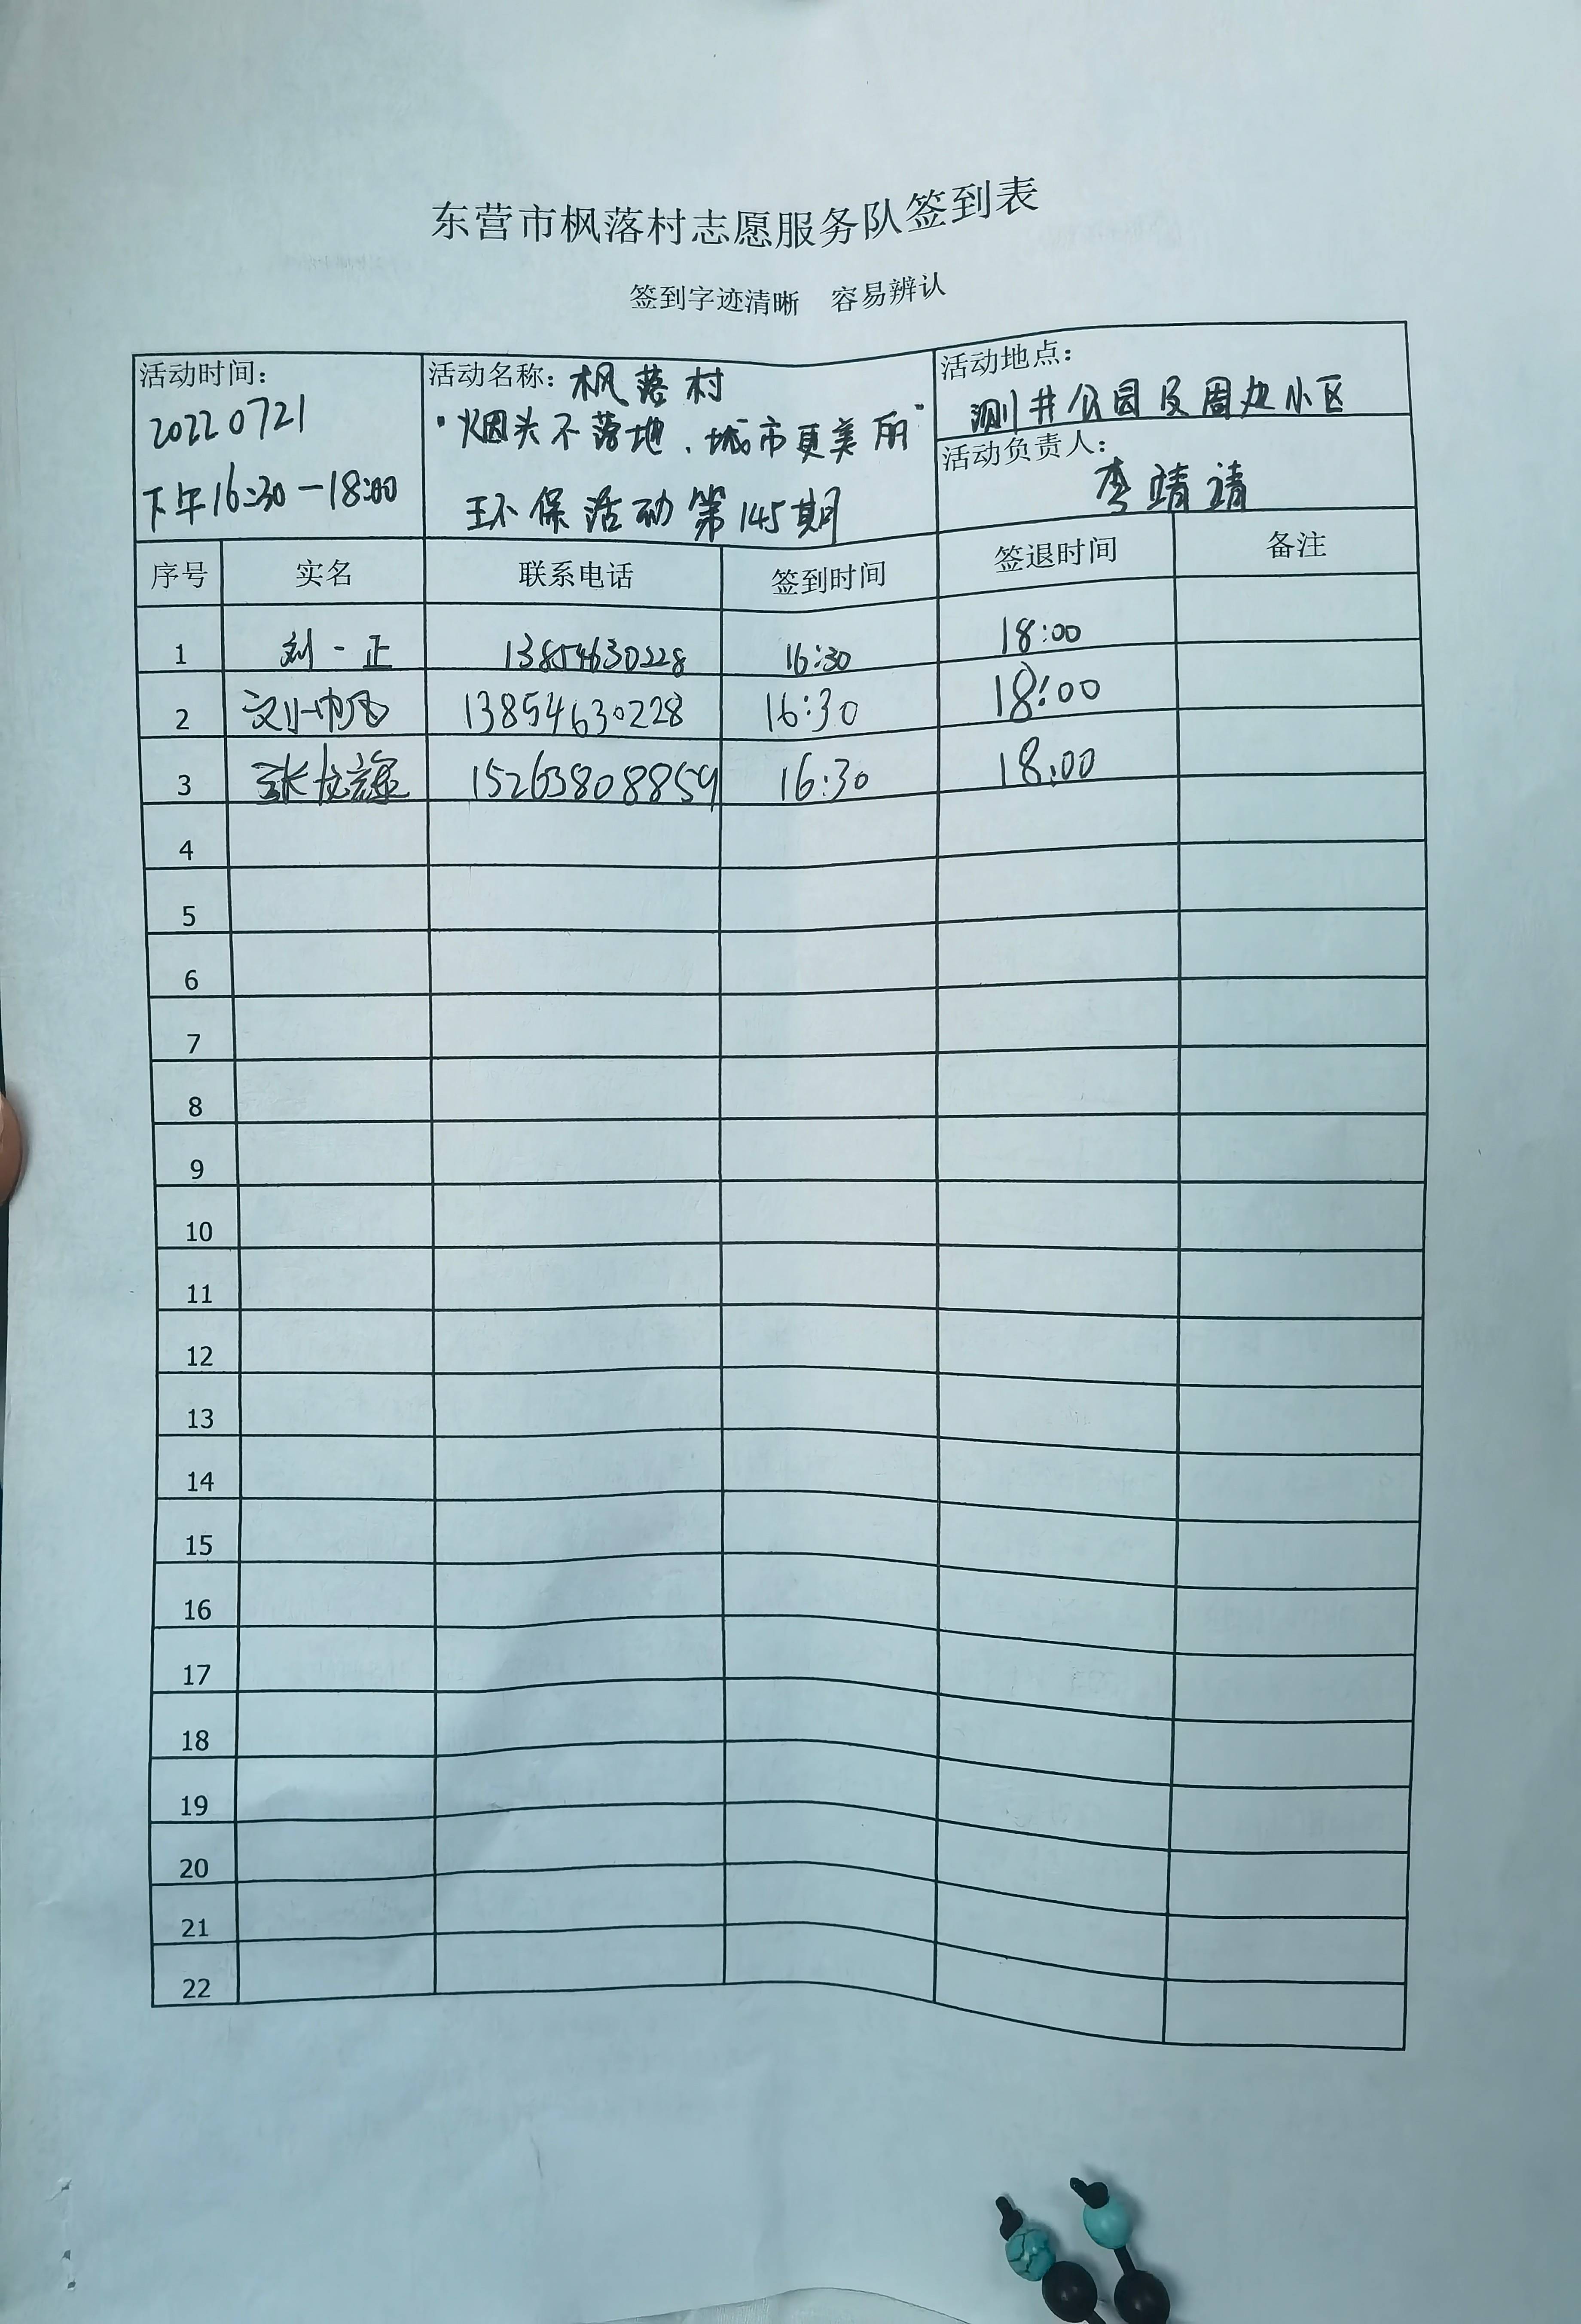 东营市枫落村志愿服务队签到表
签到字迹清晰 容易辨认
活动时间：
20220721
下午16:30-18:00
活动名称：枫落村
"烟头不落地、城市更美丽"
环保活动第145期
活动地点：
测井公园及周边小区
活动负责人：
李靖靖
序号 实名 联系电话 签到时间 签退时间 备注
1 刘一正 13854630228 16:30 18:00
2 13854630228 16:30 18:00
3 张 15263808859 16:30 18:00
4
5
6
7
8
9
10
11
12
13
14
15
16
17
18
19
20
21
22